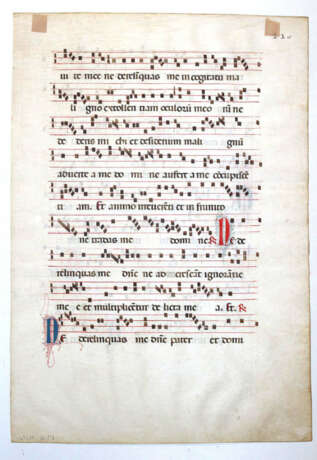 ui te mee ne derelinquas me in cogitatu ma
li gno extollen tiam oculorum meo rum ne
de deris mi chi et desiderium mali gnum
auerte a me do mi ne aufer a me concupisce
ti am. Et animo irreuerenti et in frunito
ne tradas me domi ne. Ne de
relinquas me dne ne ad crescant ignorantie
me e et multiplicentur de licta me a. Et
Ne derelinquas me dne pater et domi